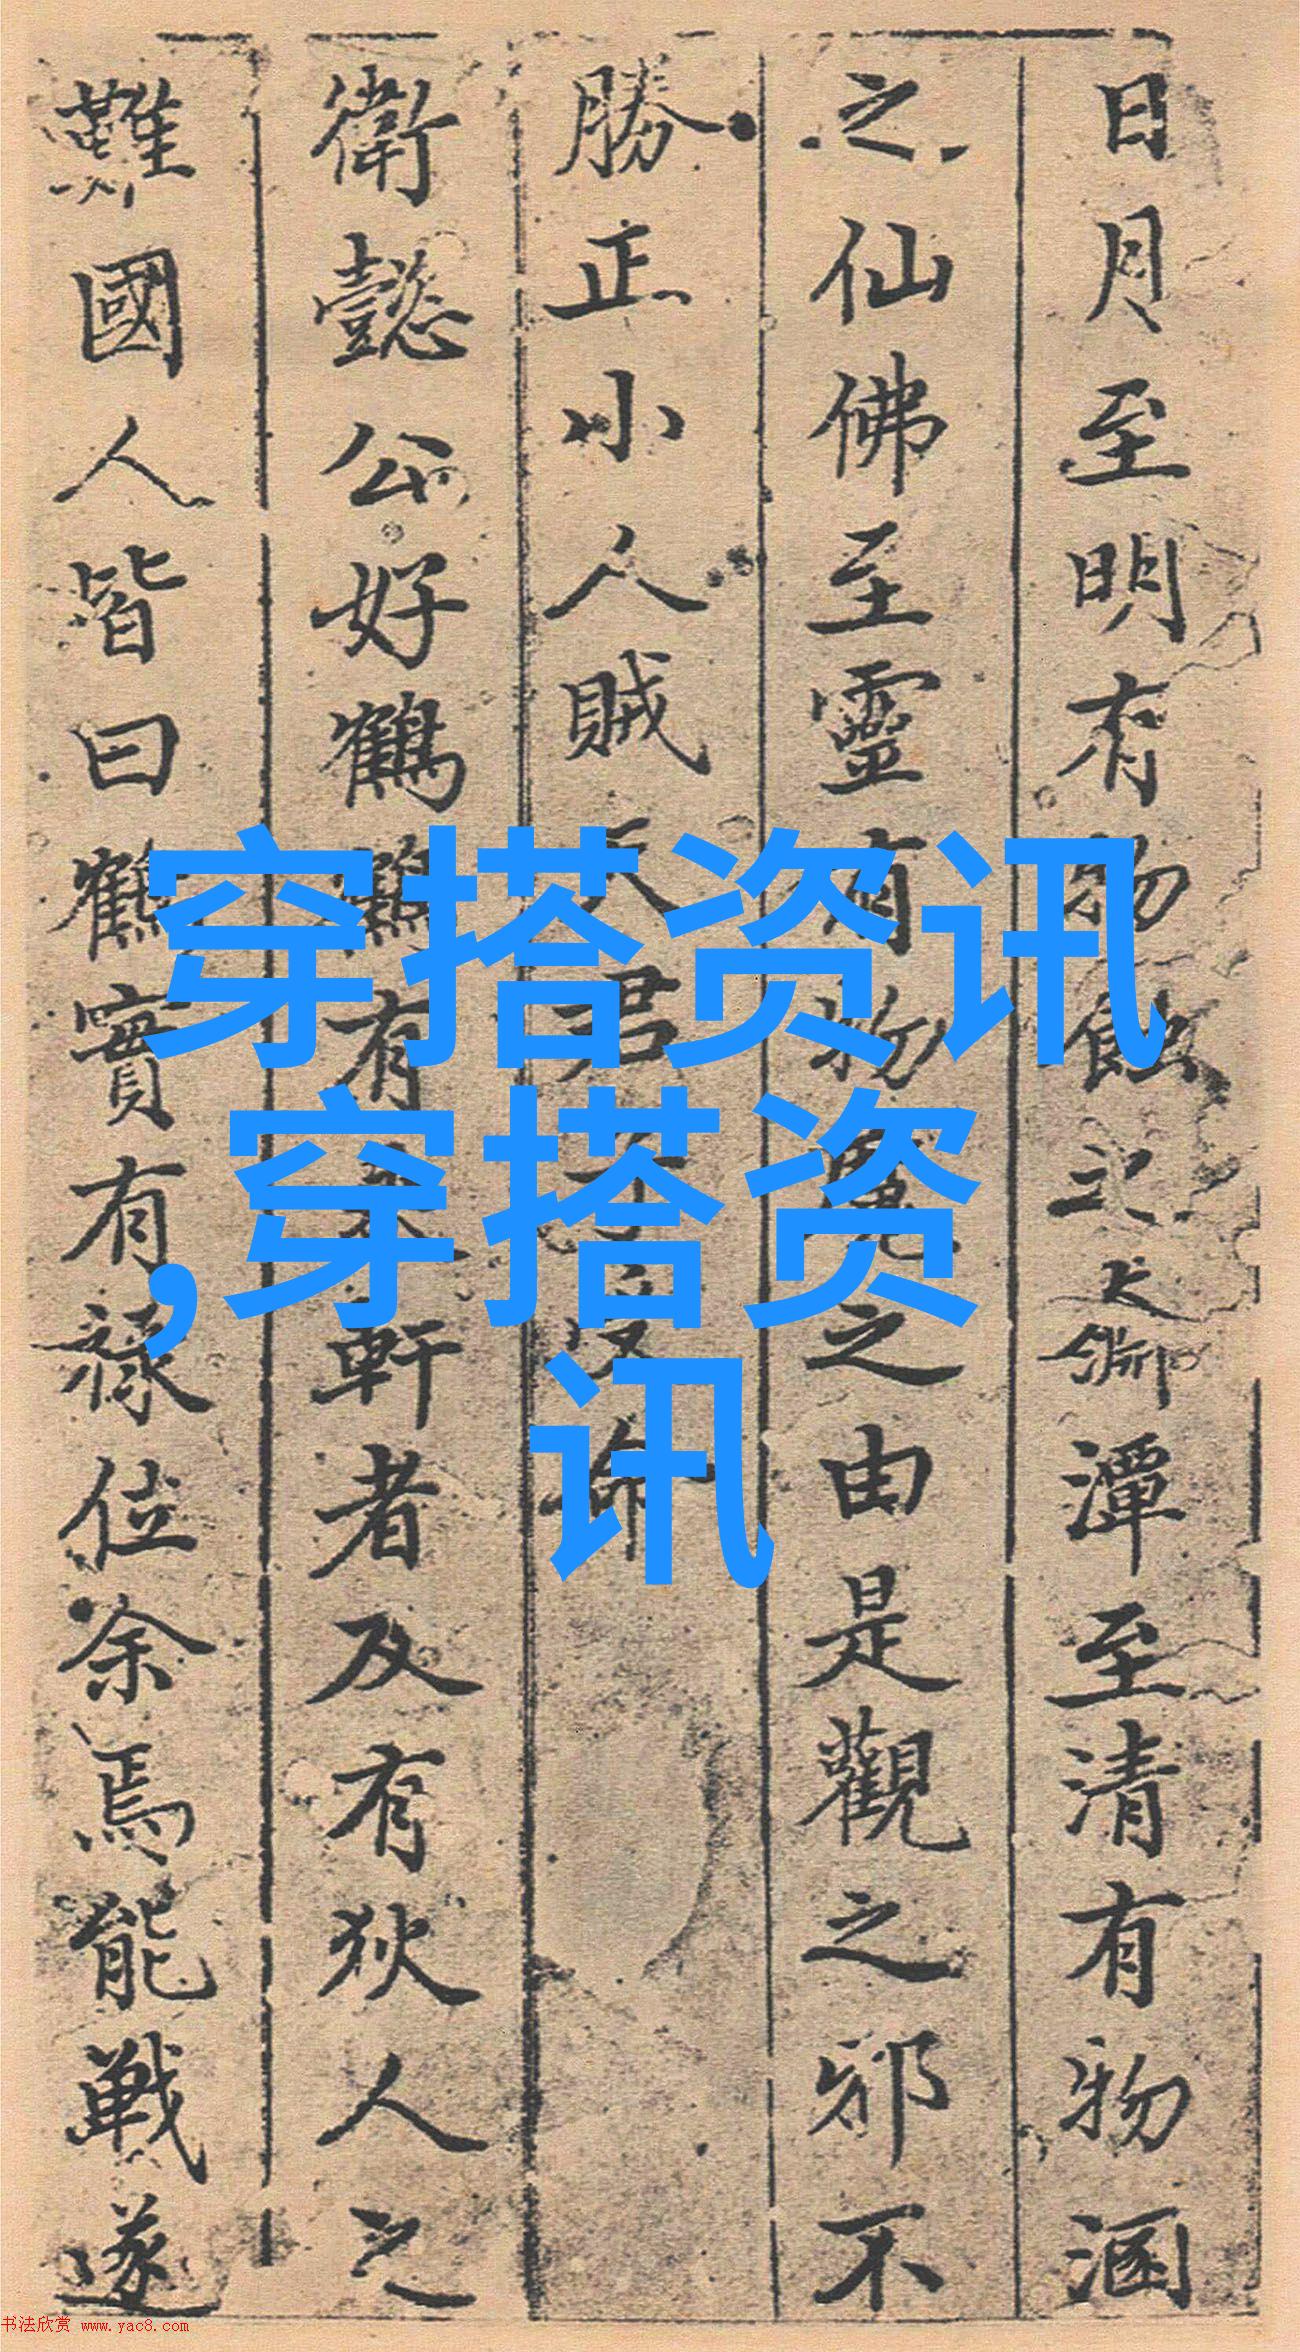 日月至明有物蝕之大潭至清有物涵
之仙佛至靈有物魔之由是觀之邪不
勝正小人賊君
衛懿公好鶴鶴有乘軒者及有狄人之
難國人皆曰鶴實有祿位余焉能戰遂
穿搭资讯
,穿搭资
讯
书法欣赏 www.yac8.com